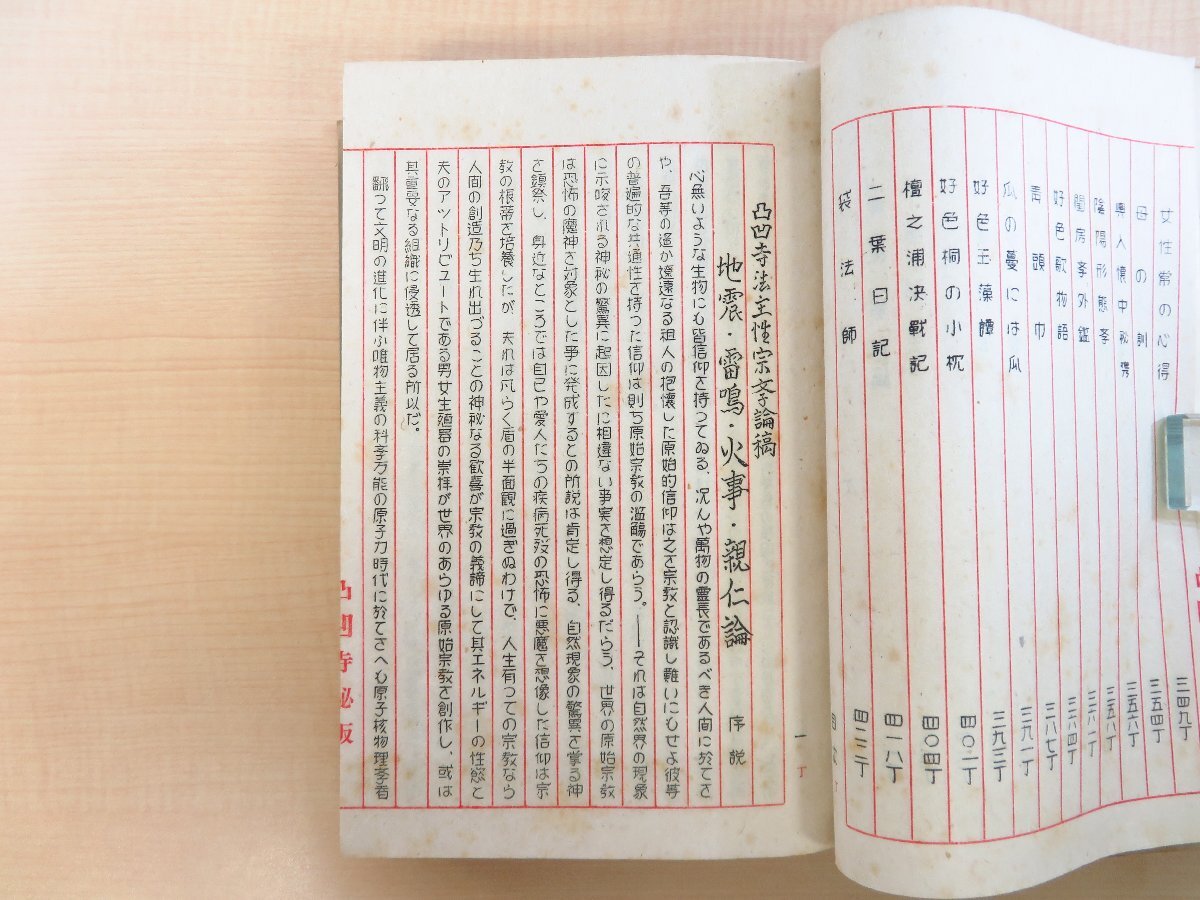 女性常の心得 三四九丁
母の訓 三五四丁
異人懐中秘 三五六丁
陰陽形態孝 三六二丁
閨房孝外鑑 三六四丁
好色歌物語 三八七丁
青頭巾 三九一丁
瓜の蔓には瓜 三九三丁
好色玉藻譚
好色桐の小枕 四〇二丁
檀之浦決戰記 四〇四丁
二葉日記 四一八丁
袋法師 四二二丁
凸凹寺法主性宗孝論稿
地震・雷鳴・火事・親仁論 序説
心無いような生物にも皆信仰を持つてゐる、况んや萬物の霊長であるべき人間に於てさ
や、吾等の遙か遠遠なる祖人の抱懐した原始的信仰は之を宗教と認識し難いにもせよ彼等
の普遍的な共通性を持つた信仰は則ち原始宗教の濫觴であらう。――それは自然界の現象
に示唆される神秘の驚異に起因したに相違ない事実を想定し得るだらう、世界の原始宗教
は恐怖の魔神を対象とした事に発成するとの所説は肯定し得る、自然現象の驚異を掌る神
を鎮祭し、卑近なところでは自己や愛人たちの疾病死歿の恐怖に悪魔を想像した信仰は宗
教の根蒂を培養したが、夫れは凡らく盾の半面観に過ぎぬわけで、人生有つての宗教なら
人間の創造乃ち生れ出づることの神秘なる歓喜が宗教の義諦にして其エネルギーの性慾と
夫のアツトリビユートである男女生殖器の崇拝が世界のあらゆる原始宗教を創作し、或は
其重要なる組織に侵透して居る所以だ。
飜つて文明の進化に伴ふ唯物主義の科孝万能の原子力時代に於てさへも原子核物理孝者
一丁
凸凹寺秘版